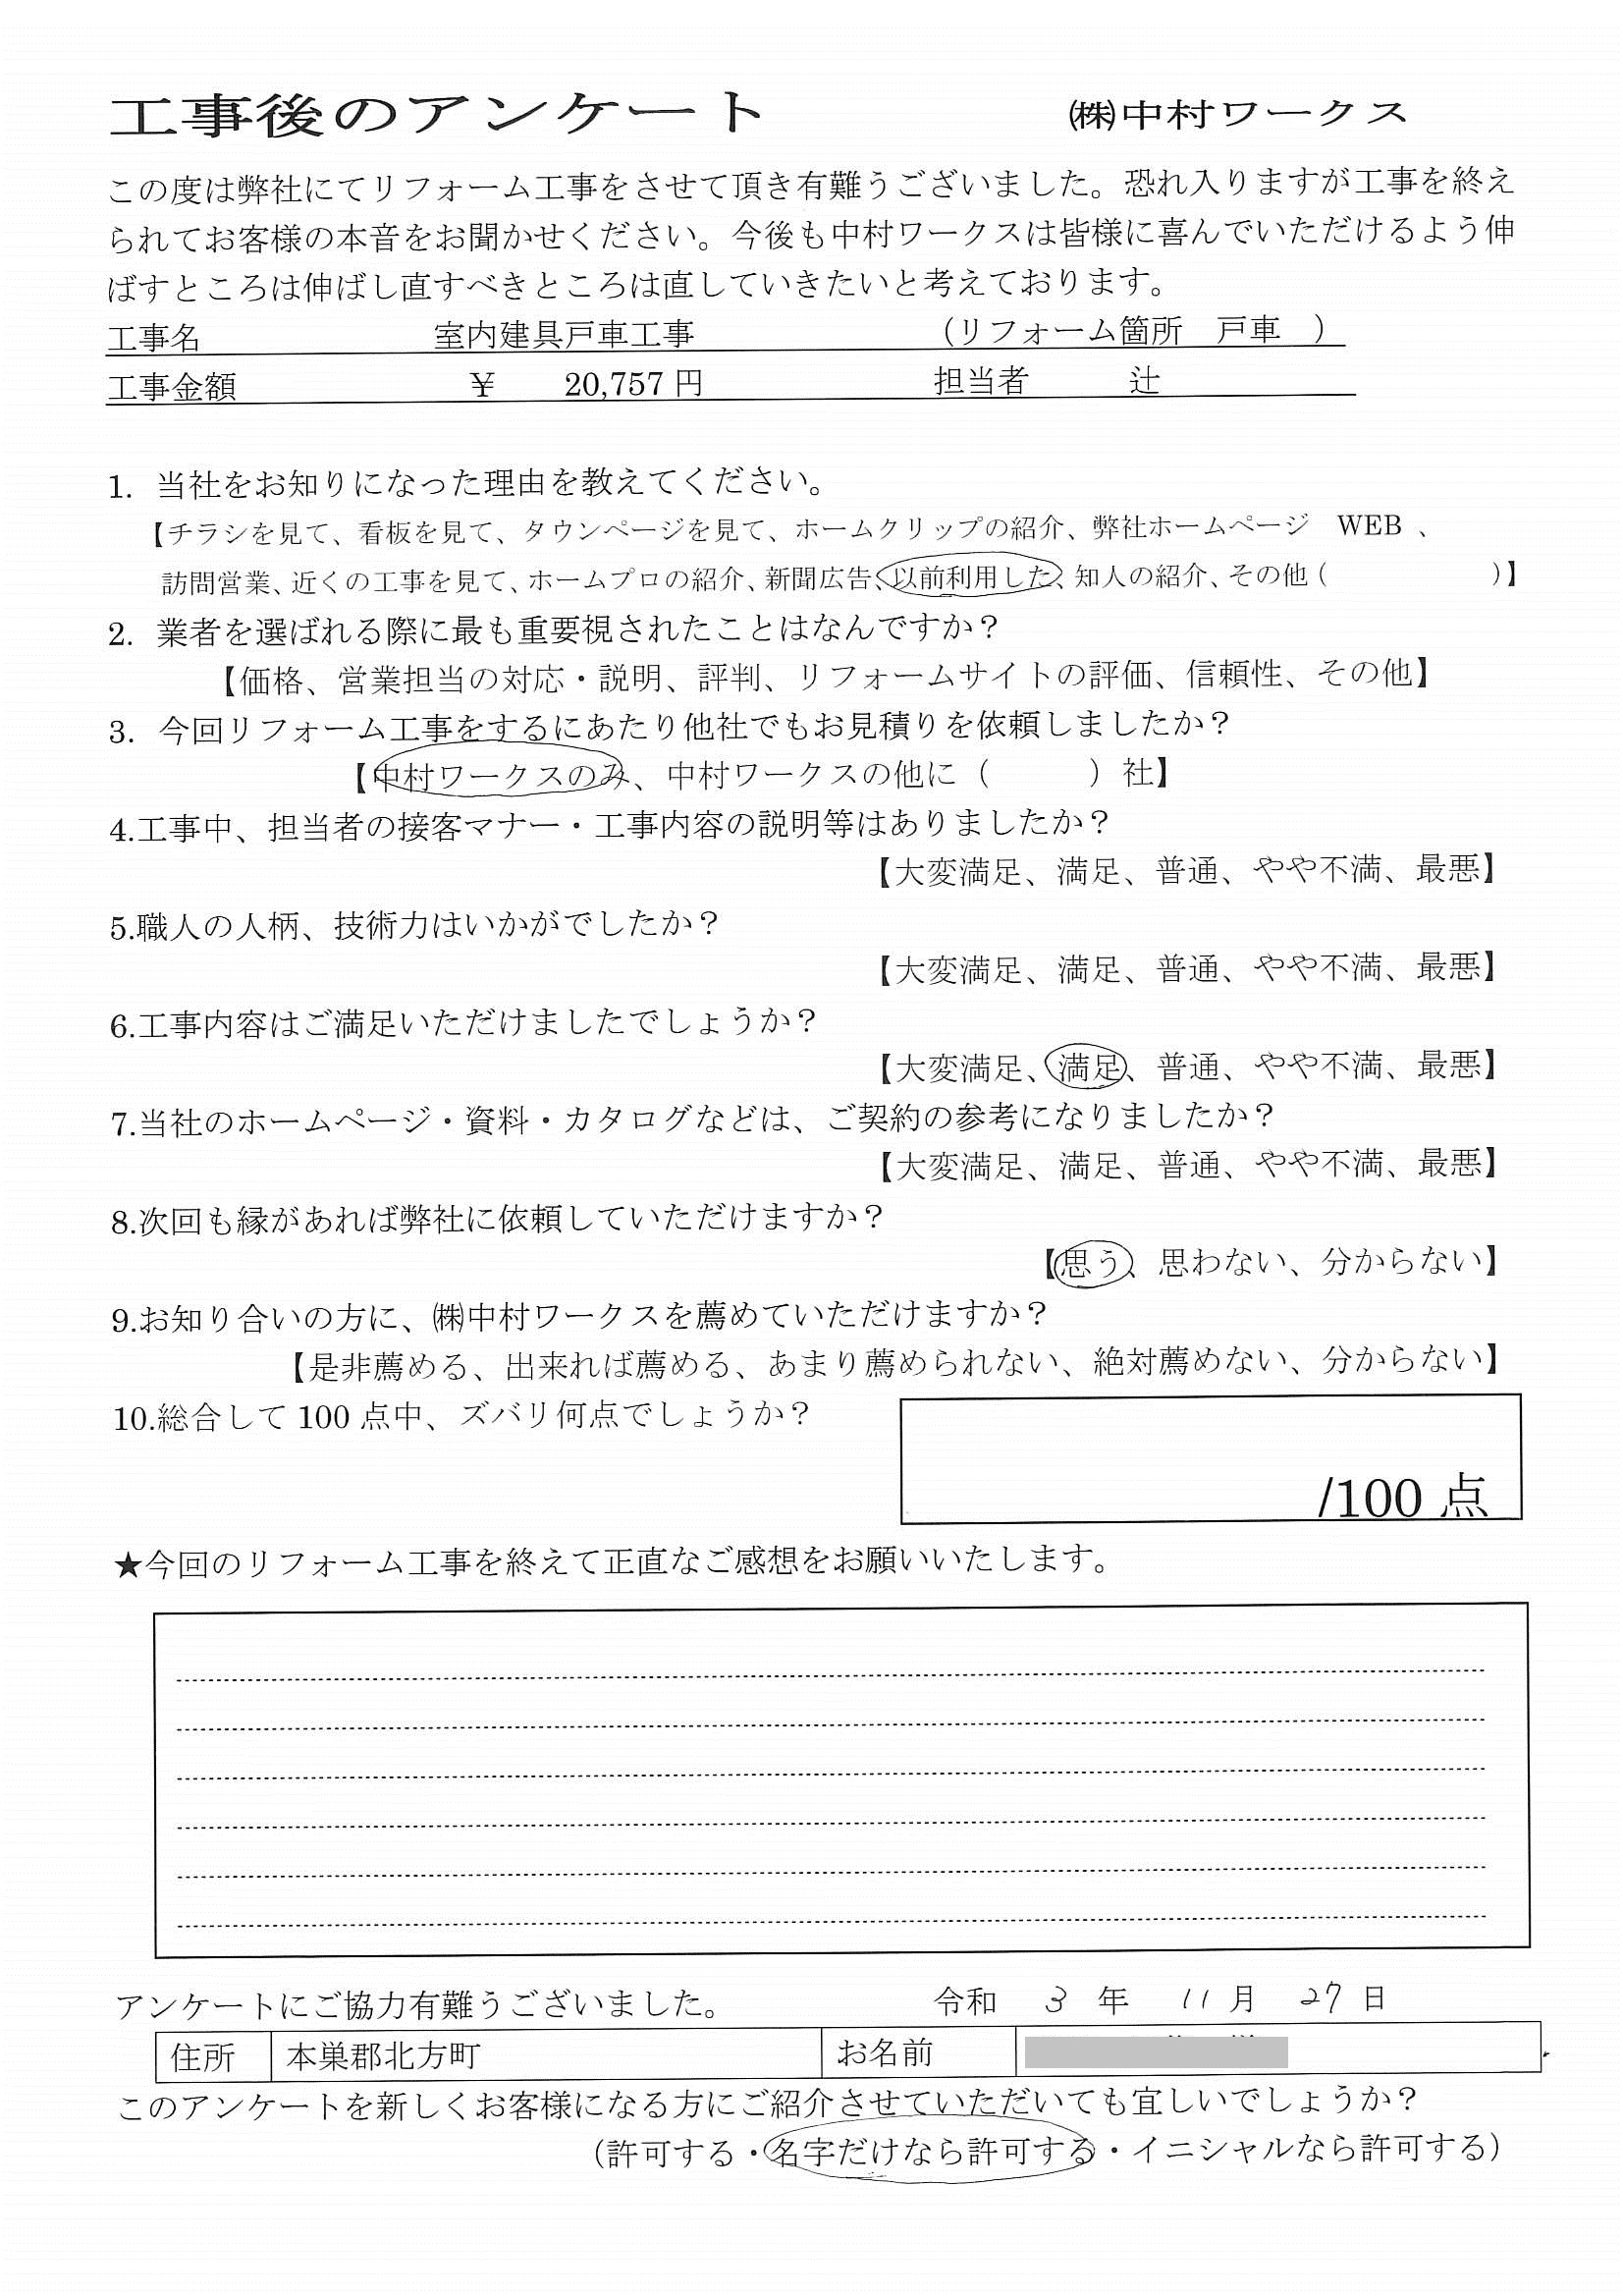 工事後のアンケート　㈱中村ワークス
この度は弊社にてリフォーム工事をさせて頂き有難うございました。恐れ入りますが工事を終え
られてお客様の本音をお聞かせください。今後も中村ワークスは皆様に喜んでいただけるよう伸
ばすところは伸ばし直すべきところは直していきたいと考えております。
工事名　室内建具戸車工事　（リフォーム箇所　戸車　）
工事金額　￥　20,757 円　担当者　辻
1. 当社をお知りになった理由を教えてください。
【チラシを見て、看板を見て、タウンページを見て、ホームクリップの紹介、弊社ホームページ　WEB 、
訪問営業、近くの工事を見て、ホームプロの紹介、新聞広告、以前利用した、知人の紹介、その他（　）】
2. 業者を選ばれる際に最も重要視されたことはなんですか？
【価格、営業担当の対応・説明、評判、リフォームサイトの評価、信頼性、その他】
3. 今回リフォーム工事をするにあたり他社でもお見積りを依頼しましたか？
【中村ワークスのみ、中村ワークスの他に（　）社】
4.工事中、担当者の接客マナー・工事内容の説明等はありましたか？
【大変満足、満足、普通、やや不満、最悪】
5.職人の人柄、技術力はいかがでしたか？
【大変満足、満足、普通、やや不満、最悪】
6.工事内容はご満足いただけましたでしょうか？
【大変満足、満足、普通、やや不満、最悪】
7.当社のホームページ・資料・カタログなどは、ご契約の参考になりましたか？
【大変満足、満足、普通、やや不満、最悪】
8.次回も縁があれば弊社に依頼していただけますか？
【思う、思わない、分からない】
9.お知り合いの方に、㈱中村ワークスを薦めていただけますか？
【是非薦める、出来れば薦める、あまり薦められない、絶対薦めない、分からない】
10.総合して 100 点中、ズバリ何点でしょうか？
/100 点
★今回のリフォーム工事を終えて正直なご感想をお願いいたします。
アンケートにご協力有難うございました。　令和　3　年　11　月　27　日
住所　本巣郡北方町　お名前
このアンケートを新しくお客様になる方にご紹介させていただいても宜しいでしょうか？
（許可する・名字だけなら許可する・イニシャルなら許可する）